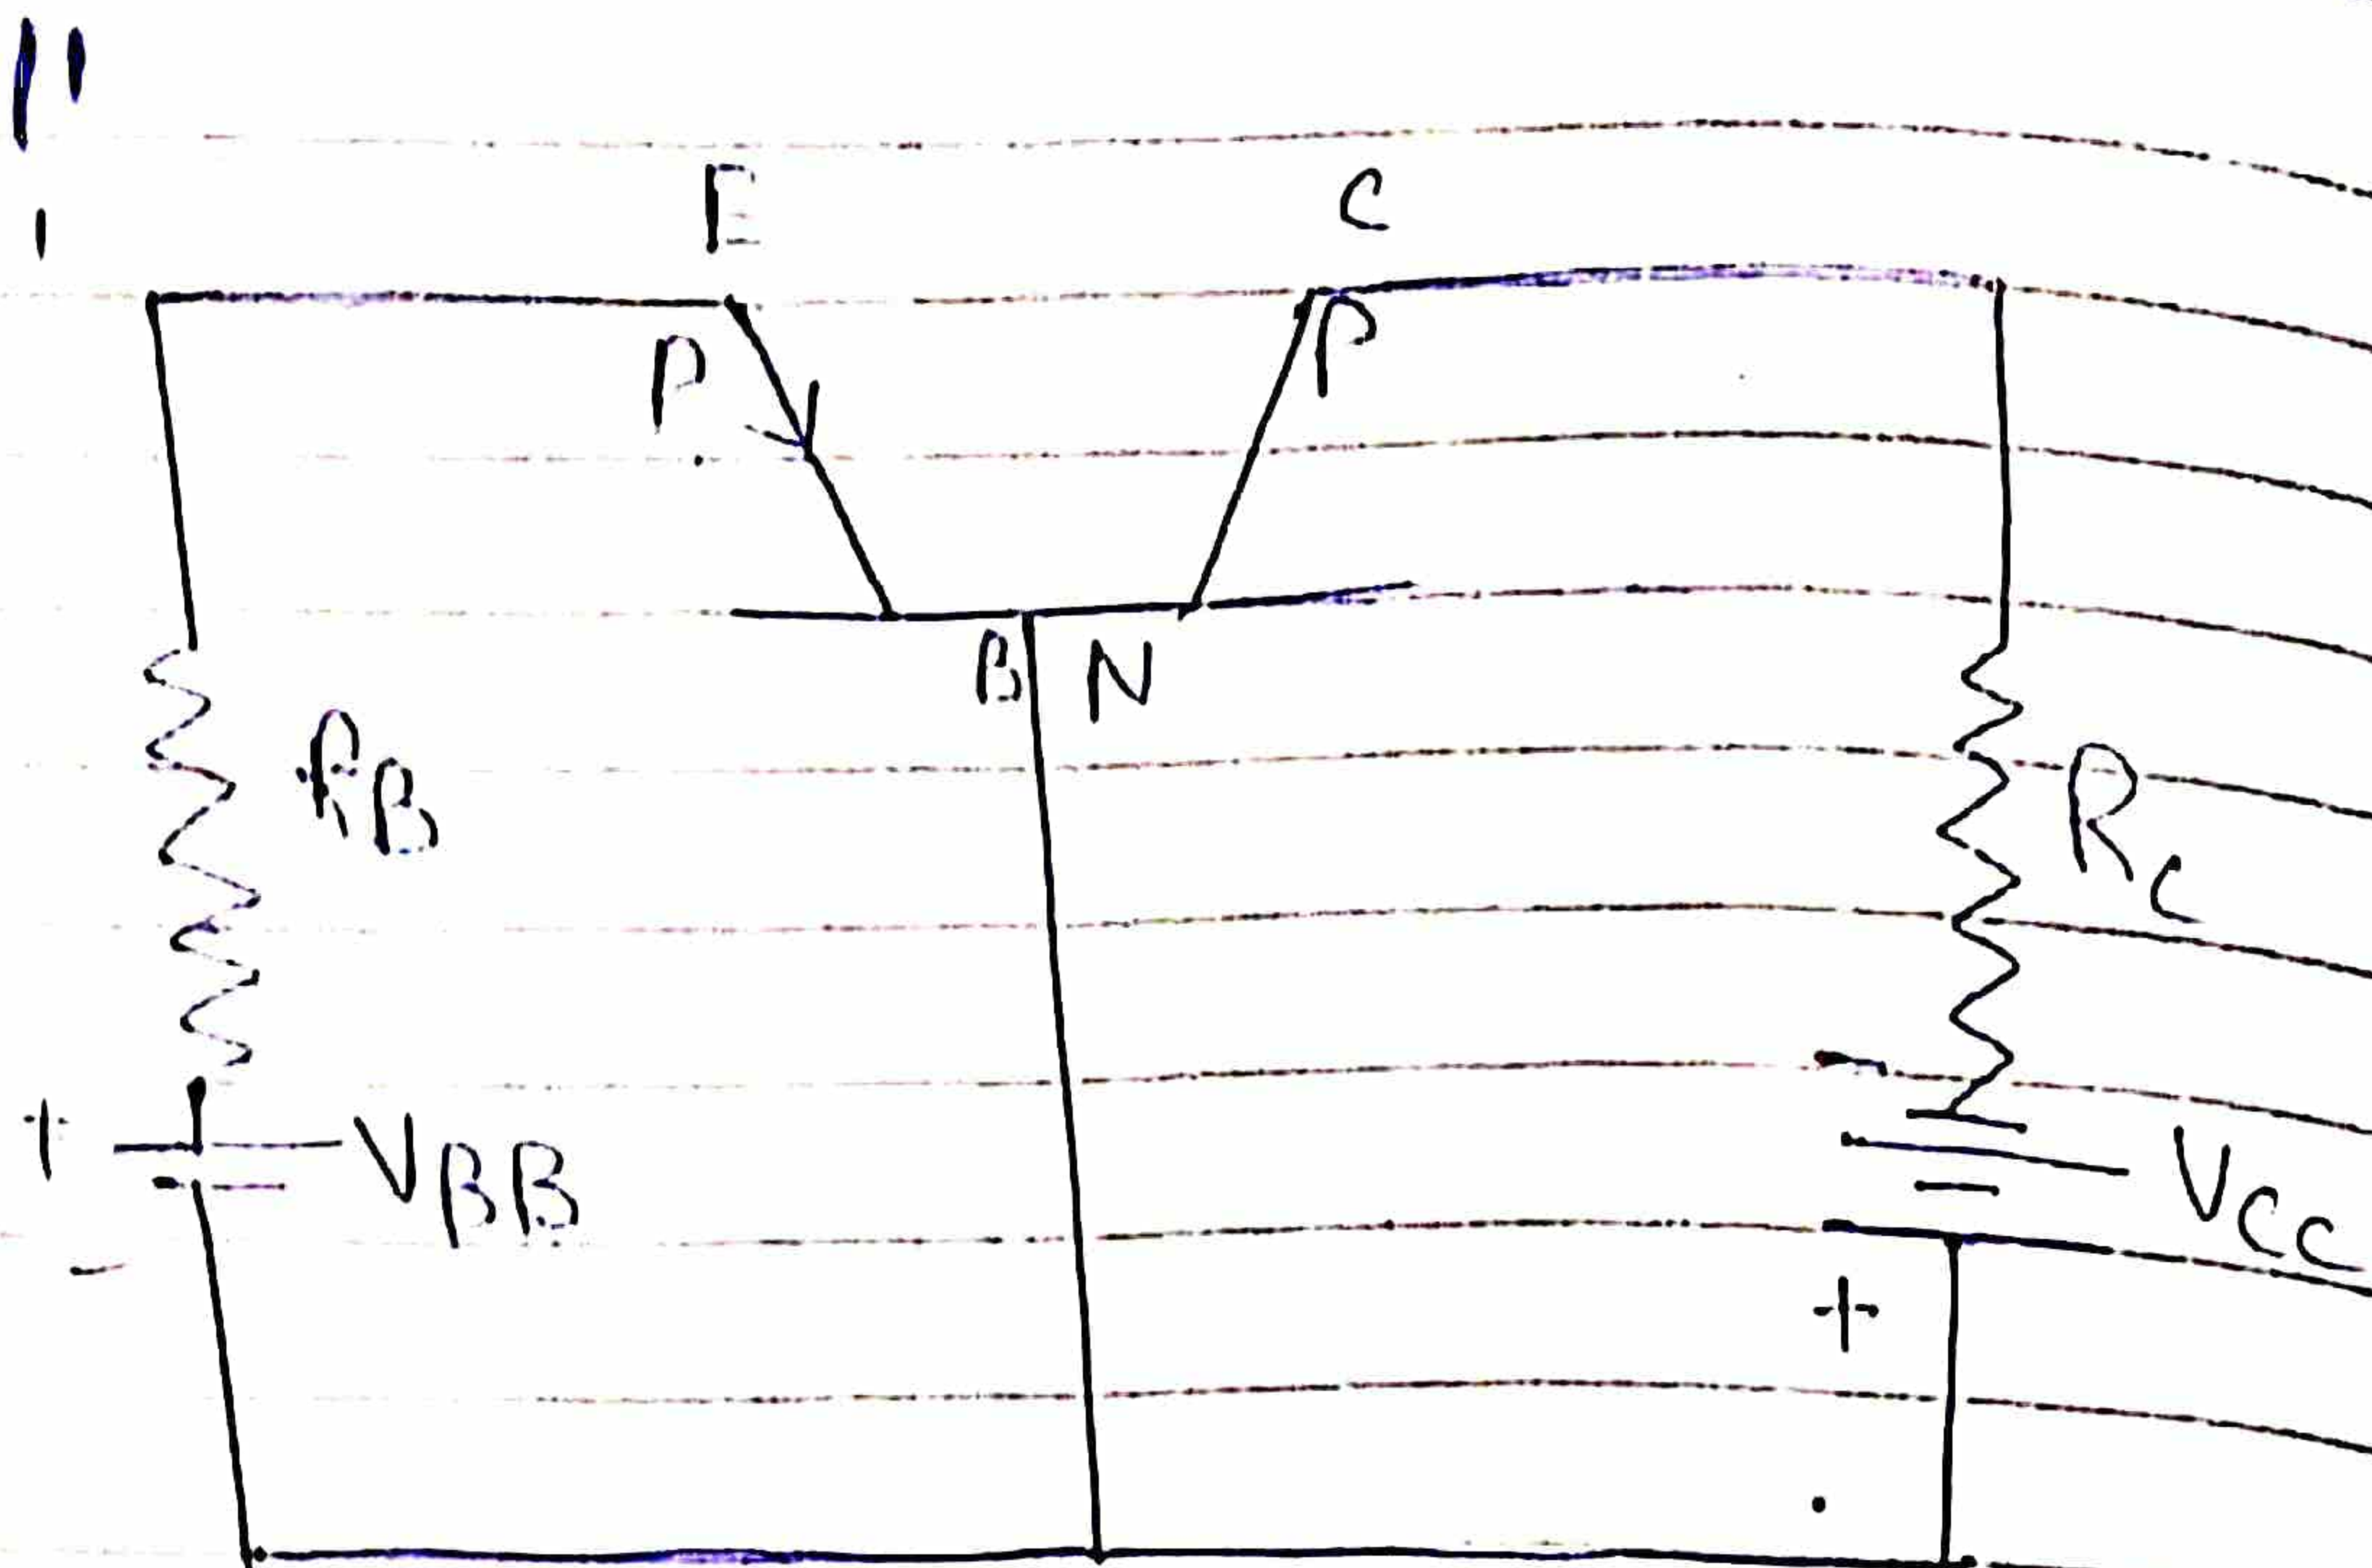 E C
P P
B N
RB
RC
+ VBB
-
- VCC
+